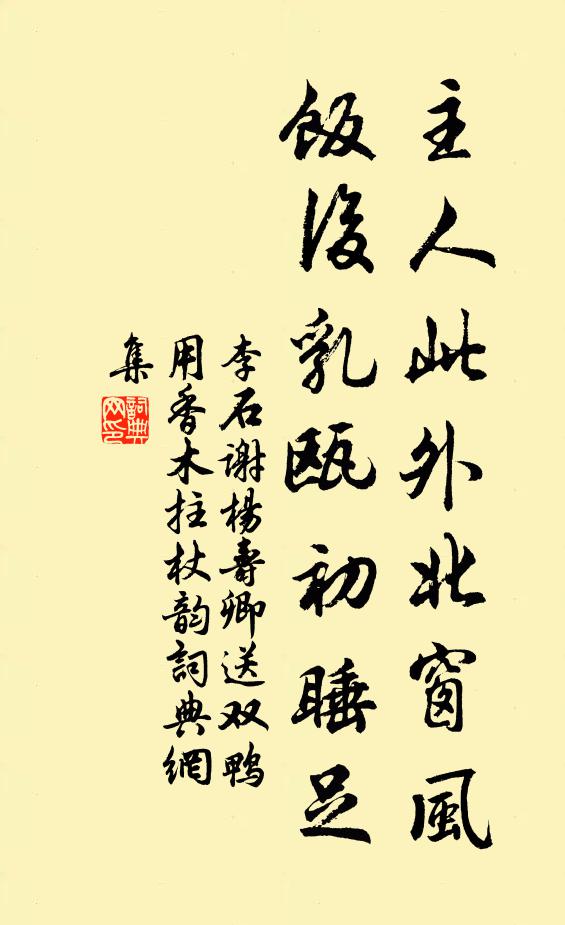 主人此外北窗風
飯後乳甌初睡足
李石谢楊壽卿送双鸭
用香木拄杖韵詞典網
集
詞典
网印